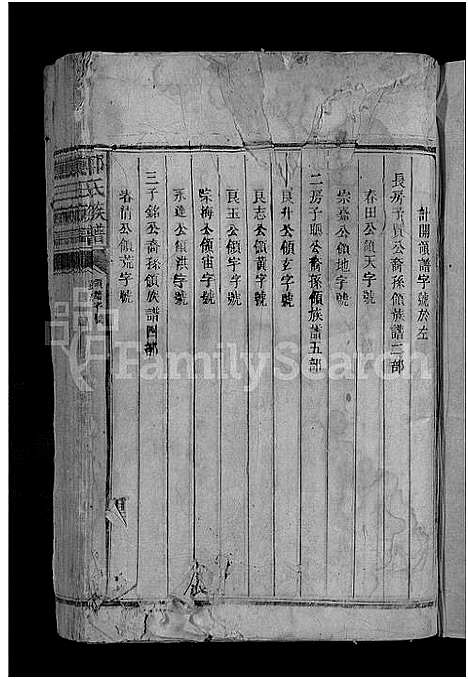 計開領譜字號於左
長房子貢公裔孫領族譜二部
春田公領天字號
宗盛公領地字號
二房子聰公裔孫領族譜五部
良升公領玄字號
良志公領黃字號
良玉公領宇字號
宗梅公領宙字號
永達公領洪字號
三子銘公裔孫領族譜四部
公領荒字號
氏族譜
領譜字號
FamilySearch